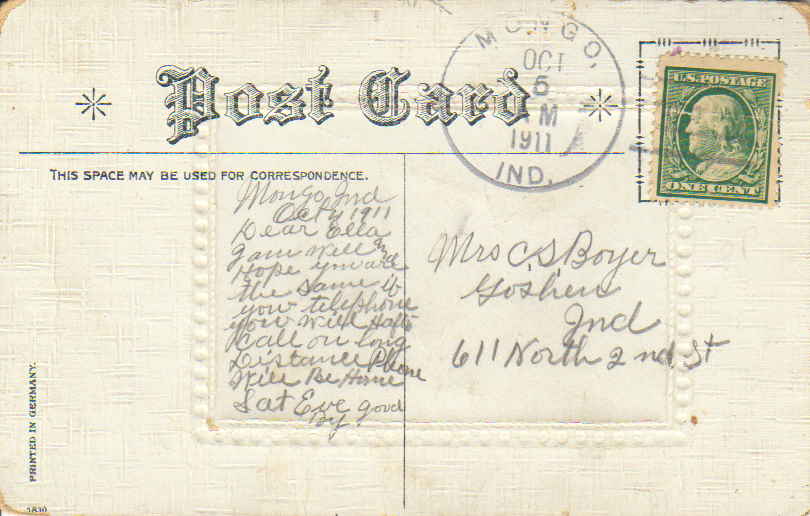 Post Card
MONGO,
OCT
5
M
1911
IND.
U.S. POSTAGE
ONE CENT
THIS SPACE MAY BE USED FOR CORRESPONDENCE.
Mongo, Ind
Oct 4 1911
Dear Ella
I am well &
Hope you are
the same if
you telephone
you will hafto
call on long
Distance Phone
Will Be Home
Sat Eve good
By.
Mrs C, S Boyer
Goshen
Ind
611 North 2nd St
PRINTED IN GERMANY.